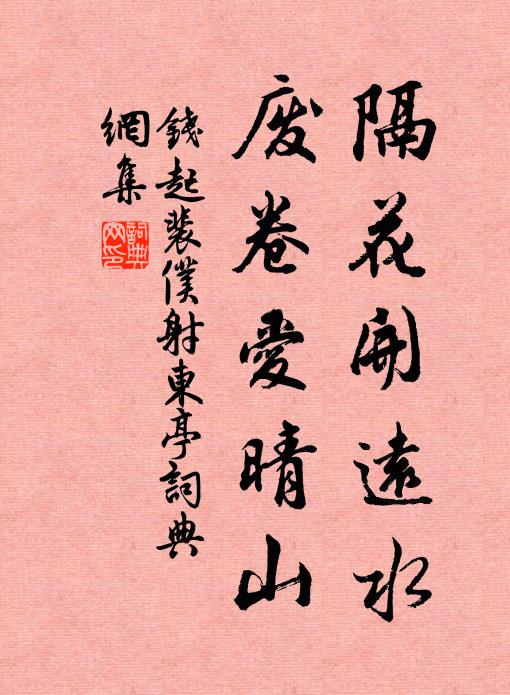 隔花開遠水
廢卷愛晴山
錢起裴僕射東亭詞典
網集
詞典網印